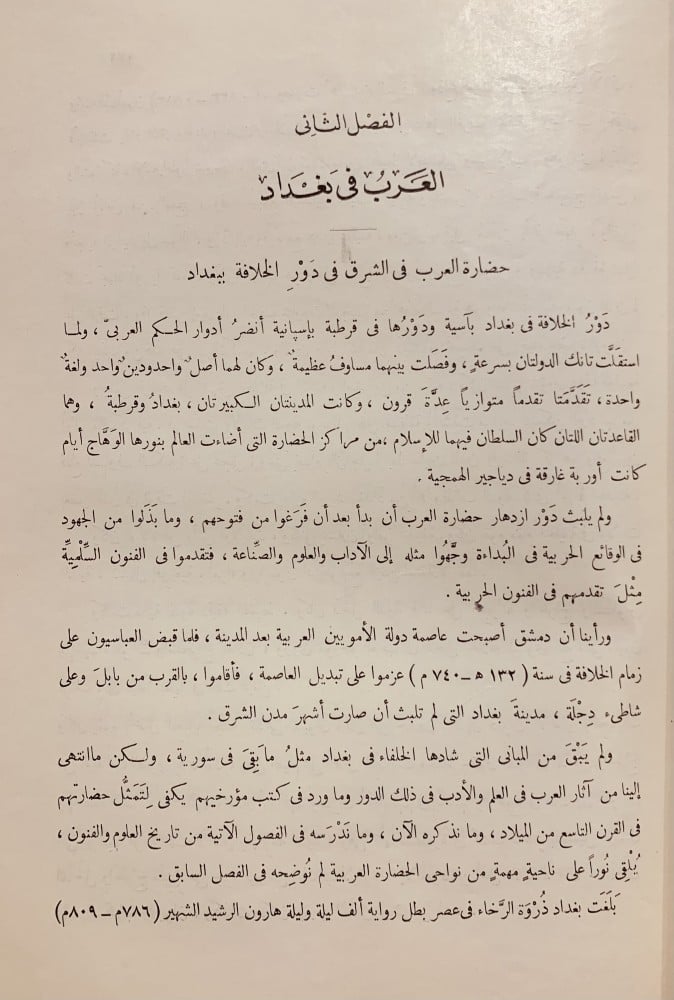 الفصْل الثّانِى
العَرَبُ فى بَغْدَاد
حضارة العرب فى الشرق فى دَوْرِ الخلافة ببغداد
دَوْرُ الخلافة فى بغداد بآسية ودَوْرُها فى قرطبة بإسپانية أنضرُ أدوار الحكم العربىّ ، ولما
استقلَّت تانك الدولتان بسرعةٍ ، وفصَلَت بينهما مساوفُ عظيمةٌ ، وكان لهما أصلٌ واحدودينٌ واحد ولغةٌ
واحدة ، تَقَدَّمَتا تقدماً متوازياً عِدَّةَ قرون ، وكانت المدينتان الكبيرتان ، بغدادُ وقرطبةُ ، وهما
القاعدتان اللتان كان السلطان فيهما للإسلام ،من مراكز الحضارة التى أضاءت العالم بنورها الوَهَّاج أيام
كانت أوربة غارقة فى دياجير الهمجية .
ولم يلبث دَوْر ازدهار حضارة العرب أن بدأ بعد أن فَرَغوا من فتوحهم ، وما بَذَلوا من الجهود
فى الوقائع الحربية فى البُداءة وجَّهُوا مثله إلى الآداب والعلوم والصِّناعة ، فتقدموا فى الفنون السِّلْمِيَّةِ
مِثْلَ تقدمهم فى الفنون الحربية .
ورأينا أن دمشق أصبحت عاصمة دولة الأمويين العربية بعد المدينة ، فلما قبض العباسيون على
زمام الخلافة فى سنة ( ١٣٢ ه – ٧٤٠ م ) عزموا على تبديل العاصمة ، فأقاموا ، بالقرب من بابلَ وعلى
شاطىء دِجْلَة ، مدينةَ بغداد التى لم تلبث أن صارت أشهرَ مدن الشرق .
ولم يَبْقَ من المبانى التى شادها الخلفاء فى بغداد مثلُ ما بَقِىَ فى سورية ، ولكن ماانتهى
إلينا من آثار العرب فى العلم والأدب فى ذلك الدور وما ورد فى كتب مؤرخيهم يكفى لِتَمَثُّل حضارتهم
فى القرن التاسع من الميلاد ، وما نذكره الآن ، وما نَدْرَسه فى الفصول الآتية من تاريخ العلوم والفنون ،
يُلْقِى نُوراً على ناحيةٍ مهمةٍ من نواحى الحضارة العربية لم نُوضِحه فى الفصل السابق .
بَلَغَت بغداد ذُرْوَة الرَّخاء فى عصر بطل رواية ألف ليلة وليلة هارون الرشيد الشهير ( ٧٨٦م – ٨٠٩م)